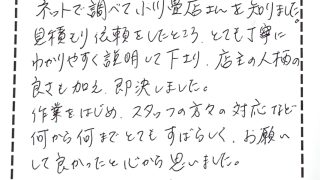 ネットで調べて小川畳店さんを知りました。
見積もり依頼をしたところ、とても丁寧に
わかりやすく説明して下さり、店主の人柄の
良さも加え、即決しました。
作業をはじめ、スタッフの方々の対応など
何から何までとてもすばらしく、お願い
して良かったと心から思いました。